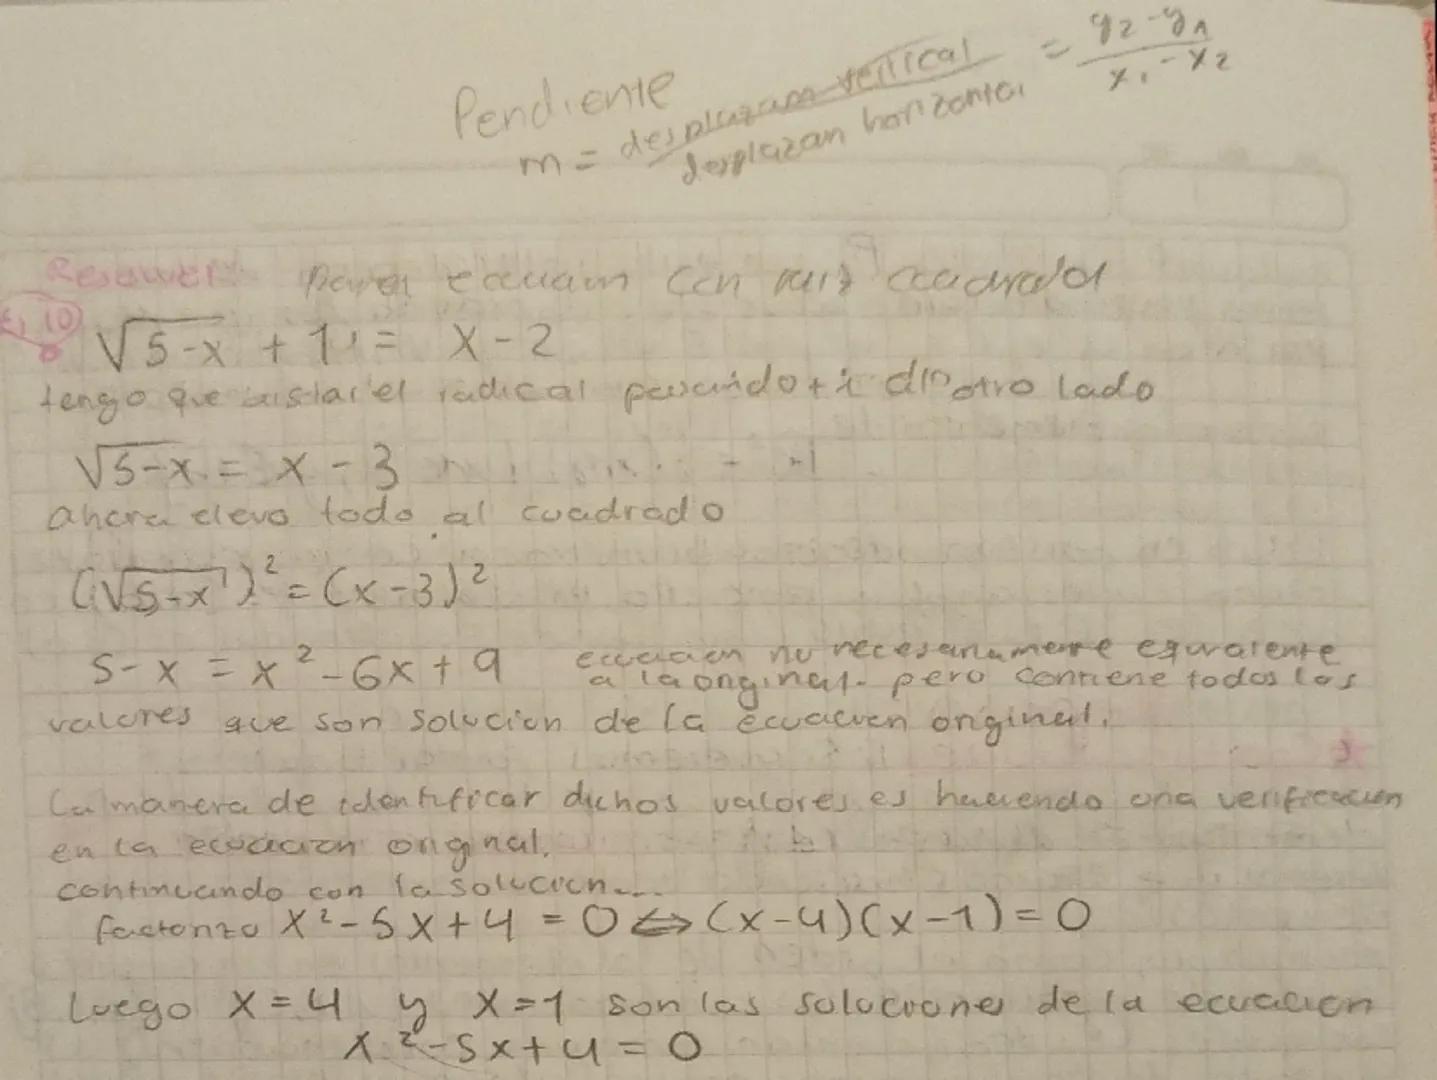 Pendiente
m = desplazam vertical / desplazan horizontal = y2 - y1 / x1 - x2
Resolver: para ecuacion con raiz cuadrada
Ej 10
√5-x + 1 = x - 2
tengo que aislar el radical pasando + 1 al otro lado
√5-x = x - 3
ahora elevo todo al cuadrado
(√5-x)² = (x-3)²
5-x = x² - 6x + 9 ecuacion no necesariamente equivalente
a la original. pero contiene todos los
valores que son solucion de la ecuacion original.
La manera de identificar dichos valores es haciendo una verificacion
en la ecuacion original.
continuando con la solucion...
factorizo x² - 5x + 4 = 0 ⇔ (x-4)(x-1) = 0
Luego x = 4 y x = 1 son las soluciones de la ecuacion
x² - 5x + 4 = 0